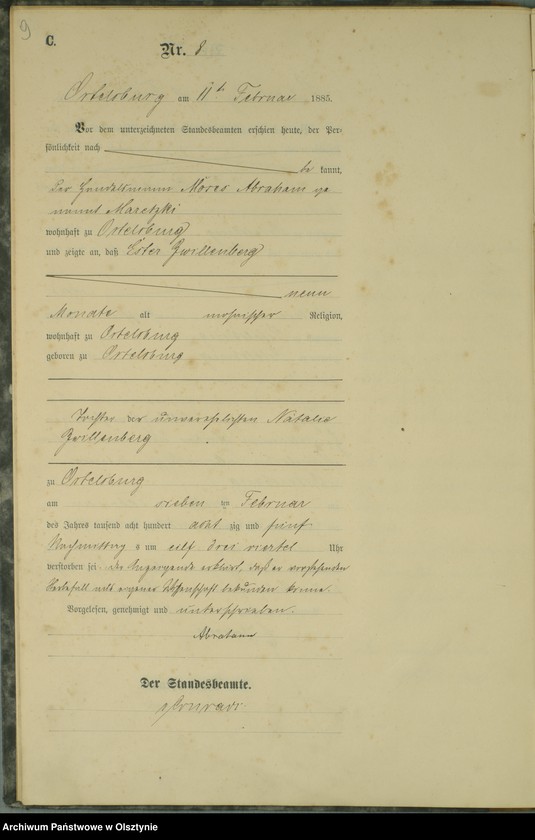 9
C.
Nr. 8
Ortelsburg am 11ten Februar 1885.
Vor dem unterzeichneten Standesbeamten erschien heute, der Per-
sönlichkeit nach
be kannt,
der Handelsmann Moses Abraham ge
nannt Maretzki
wohnhaft zu Ortelsburg
und zeigte an, daß Ester Zwillenberg
neun
Monate alt mosaischer Religion,
wohnhaft zu Ortelsburg
geboren zu Ortelsburg
Tochter der unverehelichten Natalie
Zwillenberg
zu Ortelsburg
am sieben ten Februar
des Jahres tausend acht hundert acht zig und fünf
Nachmittag s um elf drei viertel Uhr
verstorben sei. Der Anzeigende erklärt, daß er vorstehenden
Sterbefall aus eigener Wissenschaft bekunden könne.
Vorgelesen, genehmigt und unterschrieben.
Abraham
Der Standesbeamte.
Archiwum Państwowe w Olsztynie